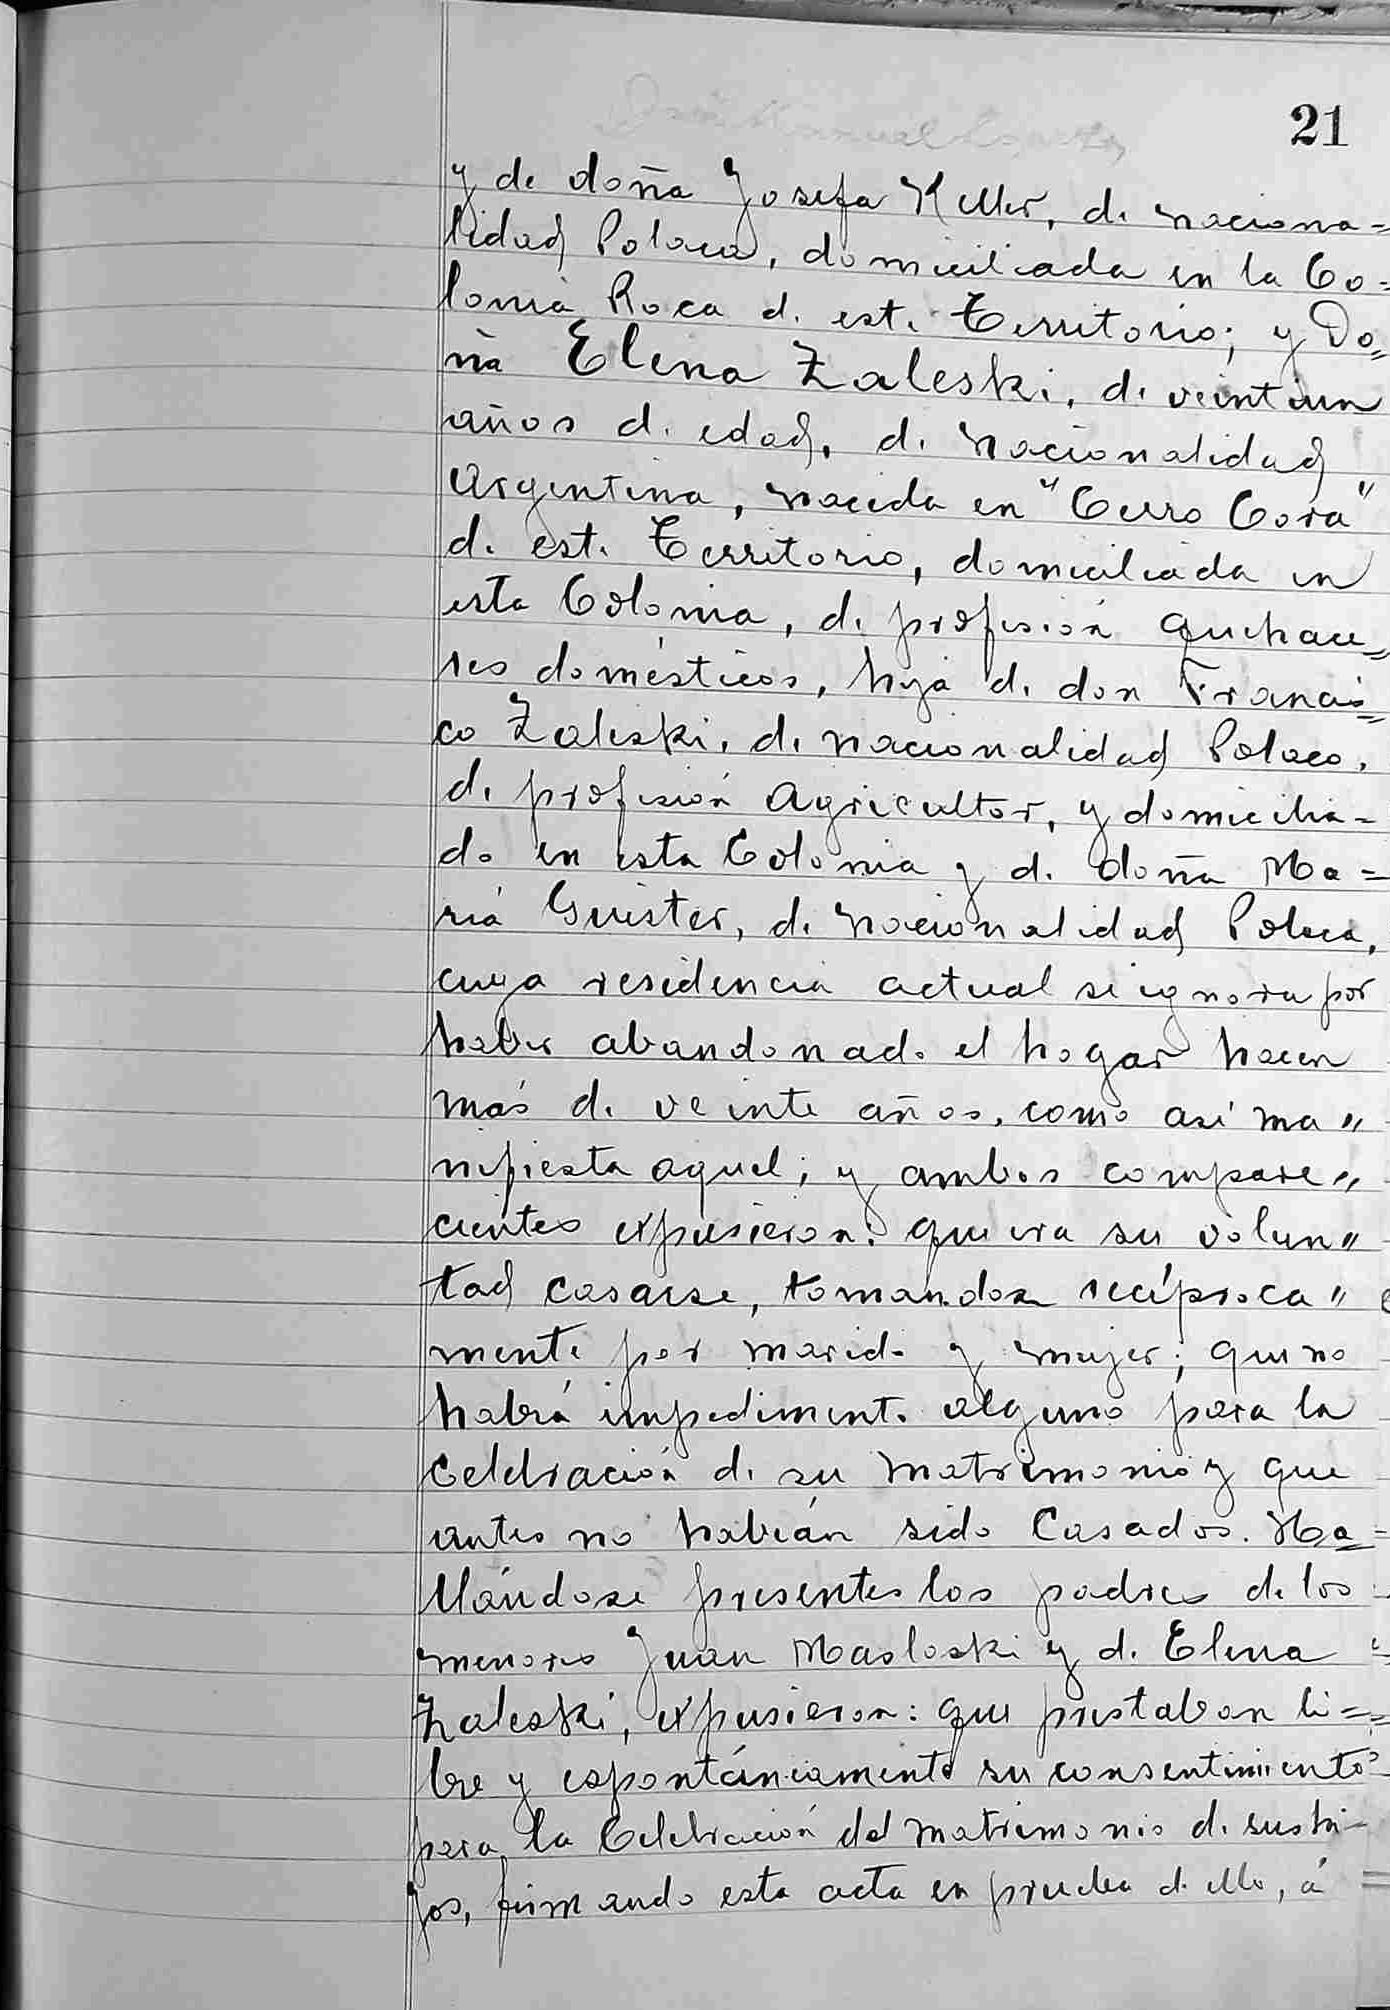 21
y de doña Josefa Keller, de naciona=
lidad Polaca, domiciliada en la Co=
lonia Roca de este Territorio; y Do=
ña Elena Zaleski, de veintiun
años de edad, de nacionalidad
Argentina, nacida en "Cerro Corá"
de este Territorio, domiciliada en
esta Colonia, de profesión quehace=
res domésticos, hija de don Francis=
co Zaleski, de nacionalidad Polaco,
de profesión agricultor, y domicilia=
do en esta Colonia y de doña Ma=
ría de nacionalidad Polaca,
cuya residencia actual se ignora por
haber abandonado el hogar hacen
más de veinte años, como así ma"
nifiesta aquel; y ambos compare"
cientes expusieron: que era su volun"
tad casarse, tomándose recíproca"
mente por marido y mujer; que no
había impedimento alguno para la
celebración de su matrimonio y que
antes no habían sido casados. Ha=
llándose presentes los padres de los
menores Juan Masloski y de Elena
Zaleski, expusieron: que prestaban li=
bre y espontáneamente su consentimiento
para la celebración del matrimonio de sus hi-
jos, firmando esta acta en prueba de ello, á